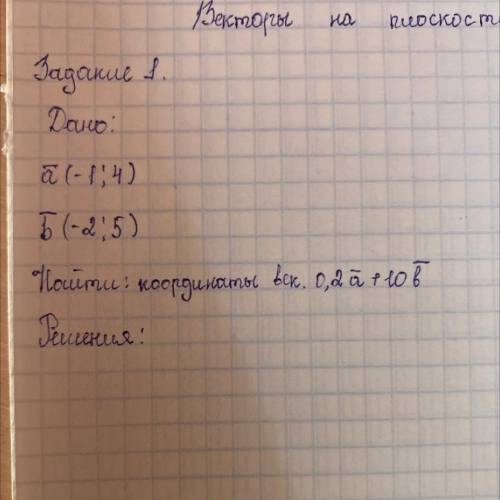 Векторы на плоскост
Задание 1.
Дано:
a̅ (-1; 4)
b̅ (-2; 5)
Найти: координаты век. 0,2a̅ + 10b̅
Решения: